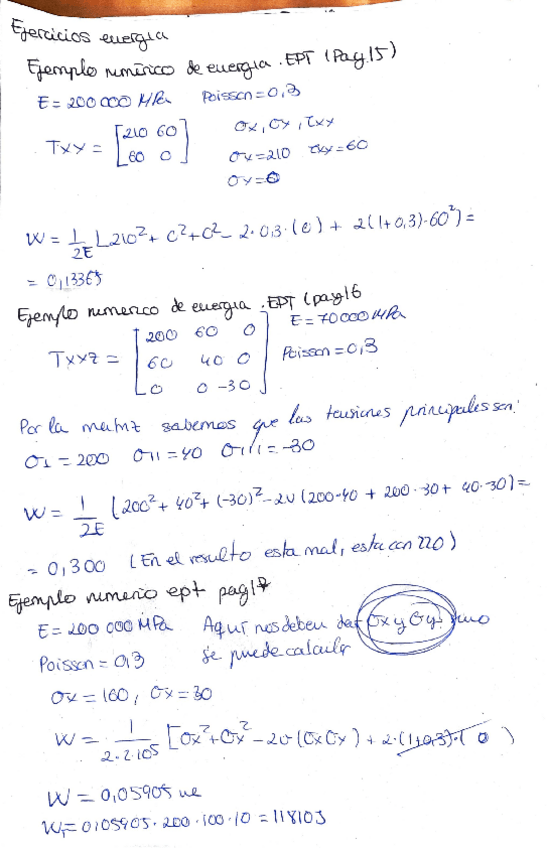 Ejercicios energia
Ejemplo numérico de energia .EPT (Pag.15)
E = 200 000 MPa   Poisson = 0,3
Txy = [210 60   σx, σy, τxy
60 0]   σx = 210   τxy = 60
σy = 0
W = 1/2E [210² + 0² + 0² - 2·0,3·(0) + 2(1+0,3)·60²) =
= 0,13365
Ejemplo numerico de energia .EPT (pag16
E = 70000 MPa
Txxz = [200 60 0
60 40 0   Poisson = 0,3
0 0 -30]
Por la matriz sabemos que las tensiones principales son:
σI = 200   σII = 40   σIII = -30
W = 1/2E (200² + 40² + (-30)² - 2υ (200·40 + 200·30 + 40·30) =
= 0,300 (En el resulto esta mal, esta con 220)
Ejemplo numerio ept pag17
E = 200 000 MPa   Aquí nos deben dar σx y σy sino
Poisson = 0,3   se puede calcular
σx = 160, σx = 30
W = 1/2·2·10⁵ [σx² + σx² - 2υ (σxσx) + 2·(1+0,3)·( 0 )
W = 0,05905 ue
W₁ = 0,05905·200·100·10 = 11810J